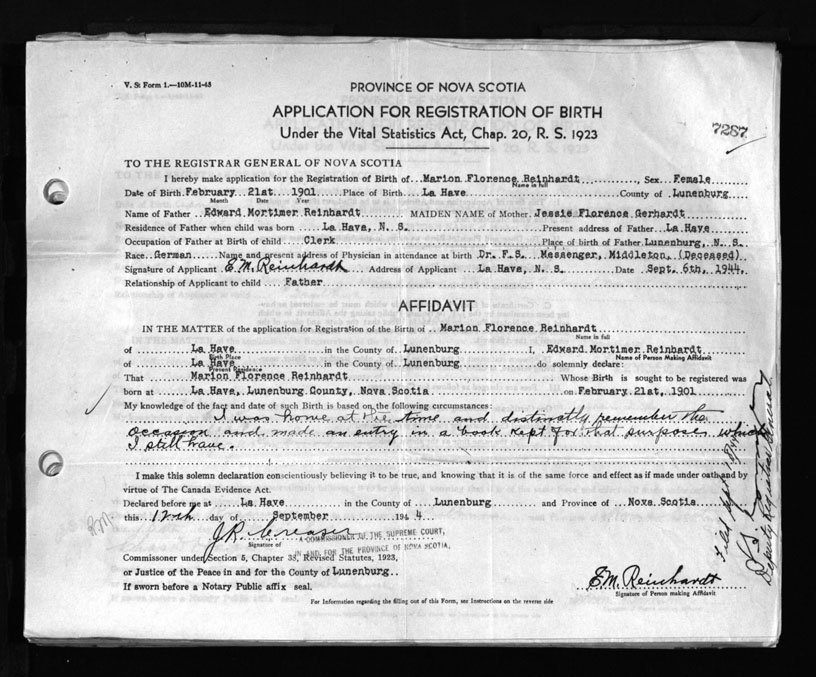 V. St Form 1.—10M-11-43
PROVINCE OF NOVA SCOTIA
APPLICATION FOR REGISTRATION OF BIRTH
7287
Under the Vital Statistics Act, Chap. 20, R. S. 1923
TO THE REGISTRAR GENERAL OF NOVA SCOTIA
I hereby make application for the Registration of Birth of Marion Florence Reinhardt, Sex Female
Name in full
Date of Birth February 21st 1901 Place of Birth La Have County of Lunenburg
Month Date Year
Name of Father Edward Mortimer Reinhardt MAIDEN NAME of Mother Jessie Florence Gerhardt
Residence of Father when child was born La Have, N. S. Present address of Father La Have
Occupation of Father at Birth of child Clerk Place of birth of Father Lunenburg, N. S.
Race German Name and present address of Physician in attendance at birth Dr. F.S. Messenger, Middleton, (Deceased)
Signature of Applicant E.M. Reinhardt Address of Applicant La Have, N. S. Date Sept. 6th, 1944,
Relationship of Applicant to child Father
AFFIDAVIT
IN THE MATTER of the application for Registration of the Birth of Marion Florence Reinhardt
Name in full
of La Have in the County of Lunenburg I, Edward Mortimer Reinhardt
Birth Place Name of Person Making Affidavit
of La Have in the County of Lunenburg do solemnly declare:
Present Residence
That Marion Florence Reinhardt Whose Birth is sought to be registered was
born at La Have, Lunenburg County, Nova Scotia on February 21st, 1901
My knowledge of the fact and date of such Birth is based on the following circumstances:
I was home at the time and distinctly remember the
occasion and made an entry in a book kept for that purpose which
I still have.
I make this solemn declaration conscientiously believing it to be true, and knowing that it is of the same force and effect as if made under oath and by
virtue of The Canada Evidence Act.
Declared before me at La Have in the County of Lunenburg and Province of Nova Scotia
this 12th day of September 1944
J.R. Creaser
Signature of
A COMMISSIONER OF THE SUPREME COURT,
IN AND FOR THE PROVINCE OF NOVA SCOTIA,
Commissioner under Section 5, Chapter 38, Revised Statutes, 1923,
or Justice of the Peace in and for the County of Lunenburg
If sworn before a Notary Public affix seal.
E.M. Reinhardt
Signature of Person making Affidavit
For Information regarding the filling out of this Form, see Instructions on the reverse side
Deputy Registrar General